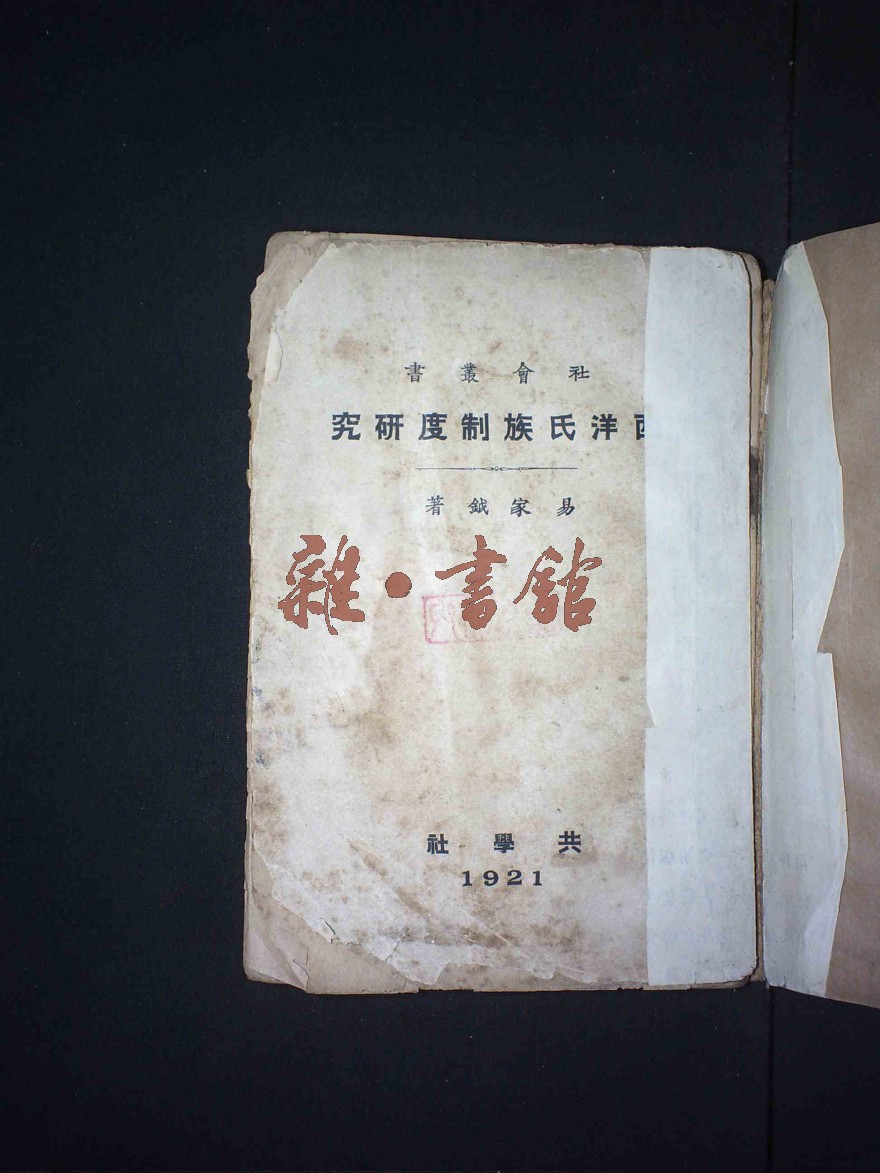 社會叢書
西洋氏族制度研究
易家鉞著
雜•書館
共學社
1921